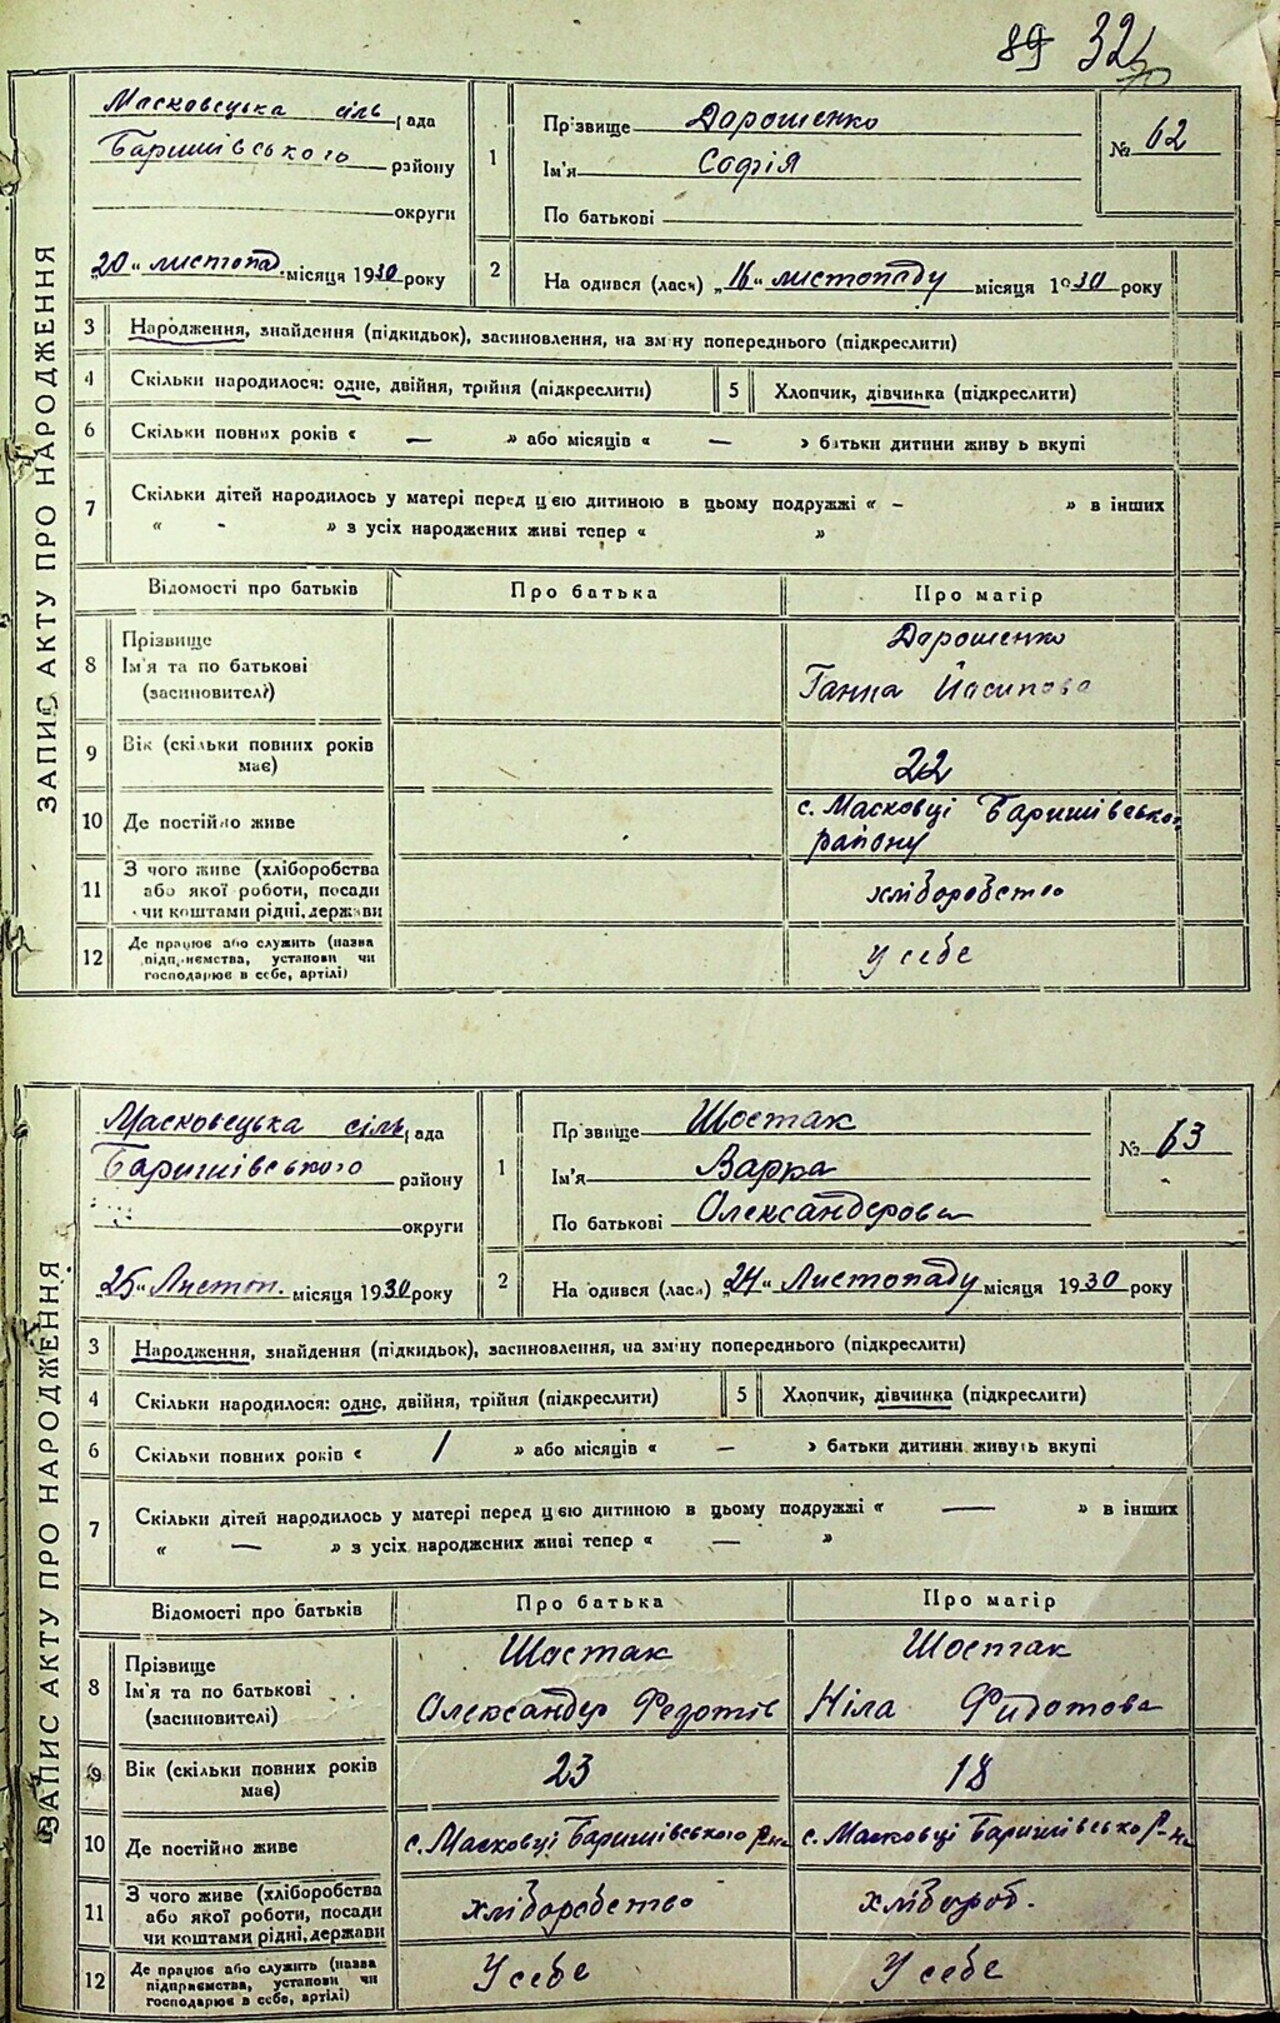 89 32
ЗАПИС АКТУ ПРО НАРОДЖЕННЯ
Масковецька сіль рада
Баришівського району
округи
„20“ листопад. місяця 1930 року
1
Прізвище Дорошенко
Ім'я Софія
По батькові
№ 62
2 На одився (лася) „16“ листопаду місяця 1930 року
3 Народження, знайдення (підкидьок), засиновлення, на зміну попереднього (підкреслити)
4 Скільки народилося: одне, двійня, трійня (підкреслити) 5 Хлопчик, дівчинка (підкреслити)
6 Скільки повних років « — » або місяців « — » батьки дитини живу ь вкупі
7 Скільки дітей народилось у матері перед цією дитиною в цьому подружжі « - » в інших
« - » з усіх народжених живі тепер « »
Відомості про батьків Про батька Про матір
8 Прізвище
Ім'я та по батькові
(засиновителі)
Дорошенко
Ганна Йосипова
9 Вік (скільки повних років
має)
22
10 Де постійно живе
с. Масковці Баришівського
району
11 З чого живе (хліборобства
або якої роботи, посади
чи коштами рідні, держави
хліборобство
12 Де працює або служить (назва
підприємства, установи чи
господарює в себе, артілі)
У себе
ЗАПИС АКТУ ПРО НАРОДЖЕННЯ
Масковецька сіль рада
Баришівського району
округи
„25“ Листоп. місяця 1930 року
1
Прізвище Шостак
Ім'я Варка
По батькові Олександерова
№ 63
2 На одився (лася) „24“ Листопаду місяця 1930 року
3 Народження, знайдення (підкидьок), засиновлення, на зміну попереднього (підкреслити)
4 Скільки народилося: одне, двійня, трійня (підкреслити) 5 Хлопчик, дівчинка (підкреслити)
6 Скільки повних років « 1 » або місяців « — » батьки дитини живуть вкупі
7 Скільки дітей народилось у матері перед цією дитиною в цьому подружжі « — » в інших
« — » з усіх народжених живі тепер « — »
Відомості про батьків Про батька Про матір
8 Прізвище
Ім'я та по батькові
(засиновителі)
Шостак
Олександер Федотів
Шостак
Ніла Фидотова
9 Вік (скільки повних років
має)
23 18
10 Де постійно живе с. Масковці Баришівського р-на с. Масковці Баришівсько р-на
11 З чого живе (хліборобства
або якої роботи, посади
чи коштами рідні, держави
хліборобство хлібороб.
12 Де працює або служить (назва
підприємства, установи чи
господарює в себе, артілі)
У себе У себе